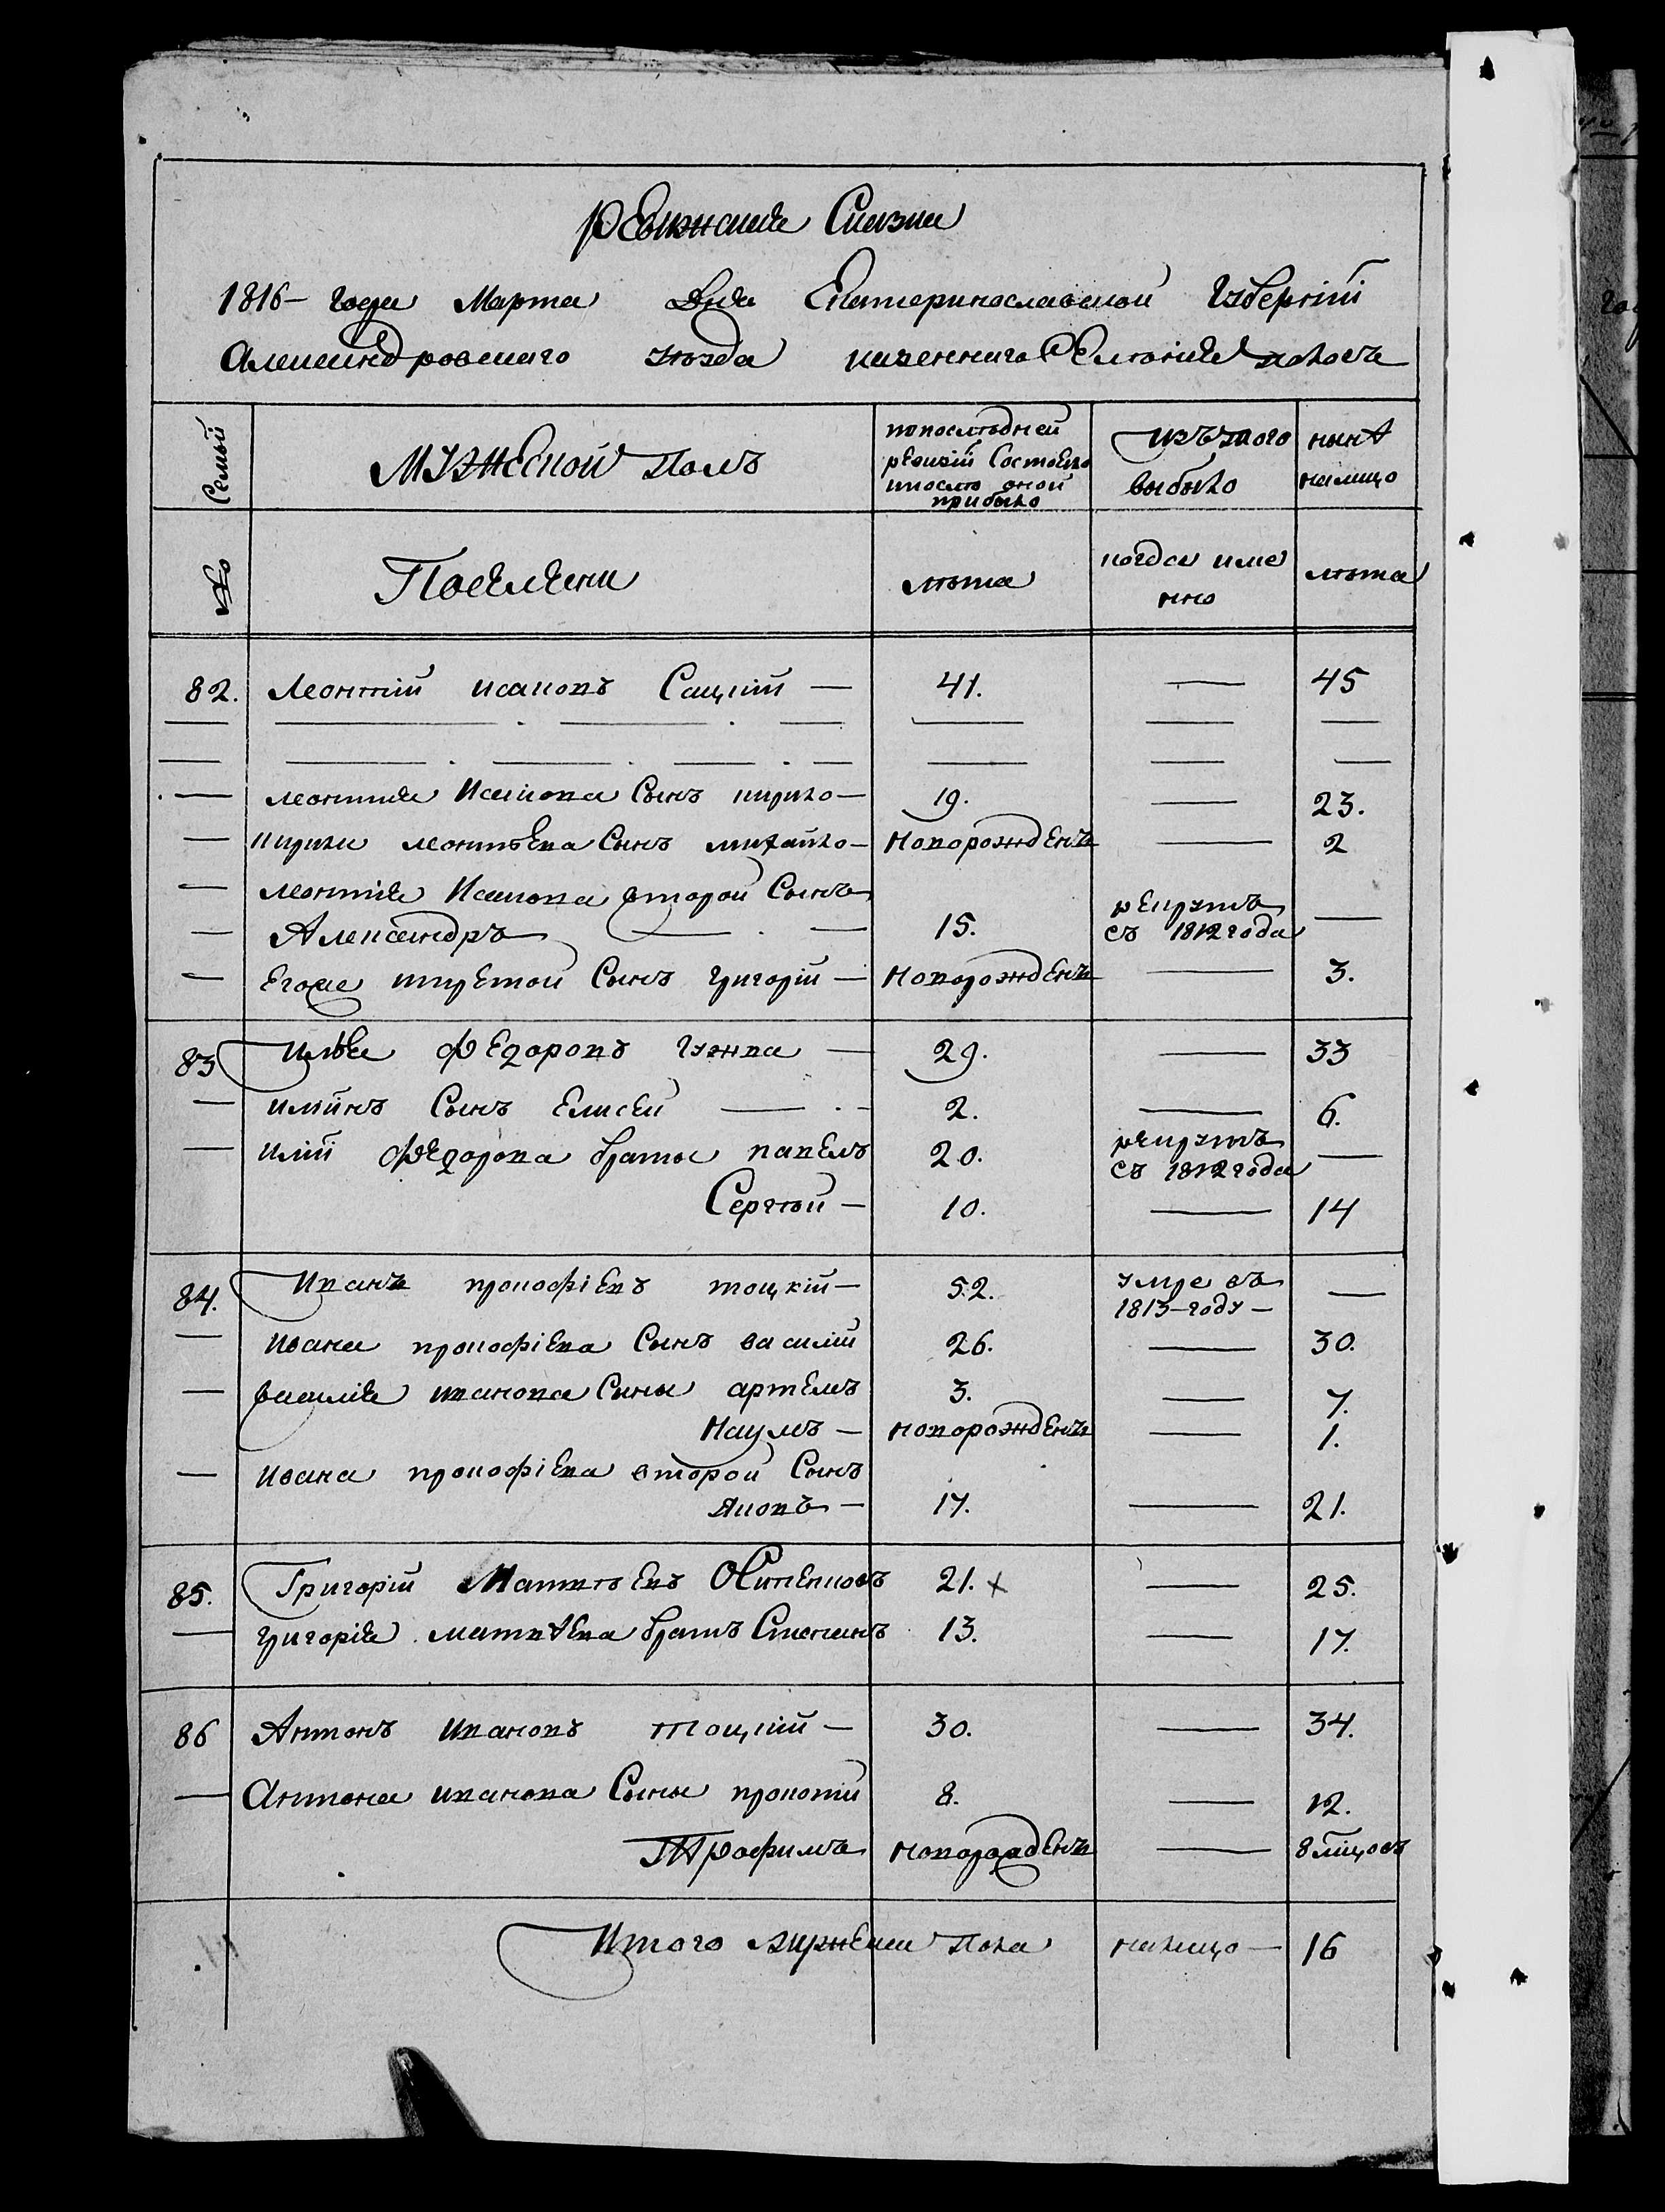 Ревижская Сказка
1816 - года Марта Дня Екатеринославской Губернїи
Александровскаго уѣзда казеннаго Селенїя
Семьи
мужеской полъ
попослѣдней
ревизїи Состояло
ипослѣ оной
прибыло
изътого
выбыло
нынѣ
налицо
№
Поселяни
лѣта
когда име
нно
лѣта
82. Леонтїй исаковъ Сацкїй — 41. — 45
— Леонтия Исакова Сынъ кирило — 19. — 23.
— кирила леонтьева Сынъ михайло — новорожденъ — 2
— леонтия Исакова второй Сынъ
— Александръ — 15. рекрутъ съ 1812 года —
— Егоже третой Сынъ григорїй — новорожденъ — 3.
83 илья Федоровъ гужва — 29. — 33
— илїинъ Сынъ Елисей — 2. — 6.
— илїи Федорова браты павелъ 20. рекрутъ съ 1812 года —
Сергѣй — 10. — 14
84. Иванъ прокофїевъ тоцкїй — 52. умре въ 1813 - году —
— ивана прокофїева Сынъ василїй 26. — 30.
— василїя иванова Сыны артемъ 3. — 7.
Наумъ — новорожденъ — 1.
— ивана прокофїева второй Сынъ
яковъ — 17. — 21.
85. Григорїй Матвѣевъ 21. х — 25.
— григорїя матвѣева братъ Степанъ 13. — 17.
86 Антонъ ивановъ тоцкїй — 30. — 34.
— Антона иванова Сыны прокопїй 8. — 12.
Трофимъ новорожденъ — 8 мїцовъ
Итого мужеска пола налицо — 16